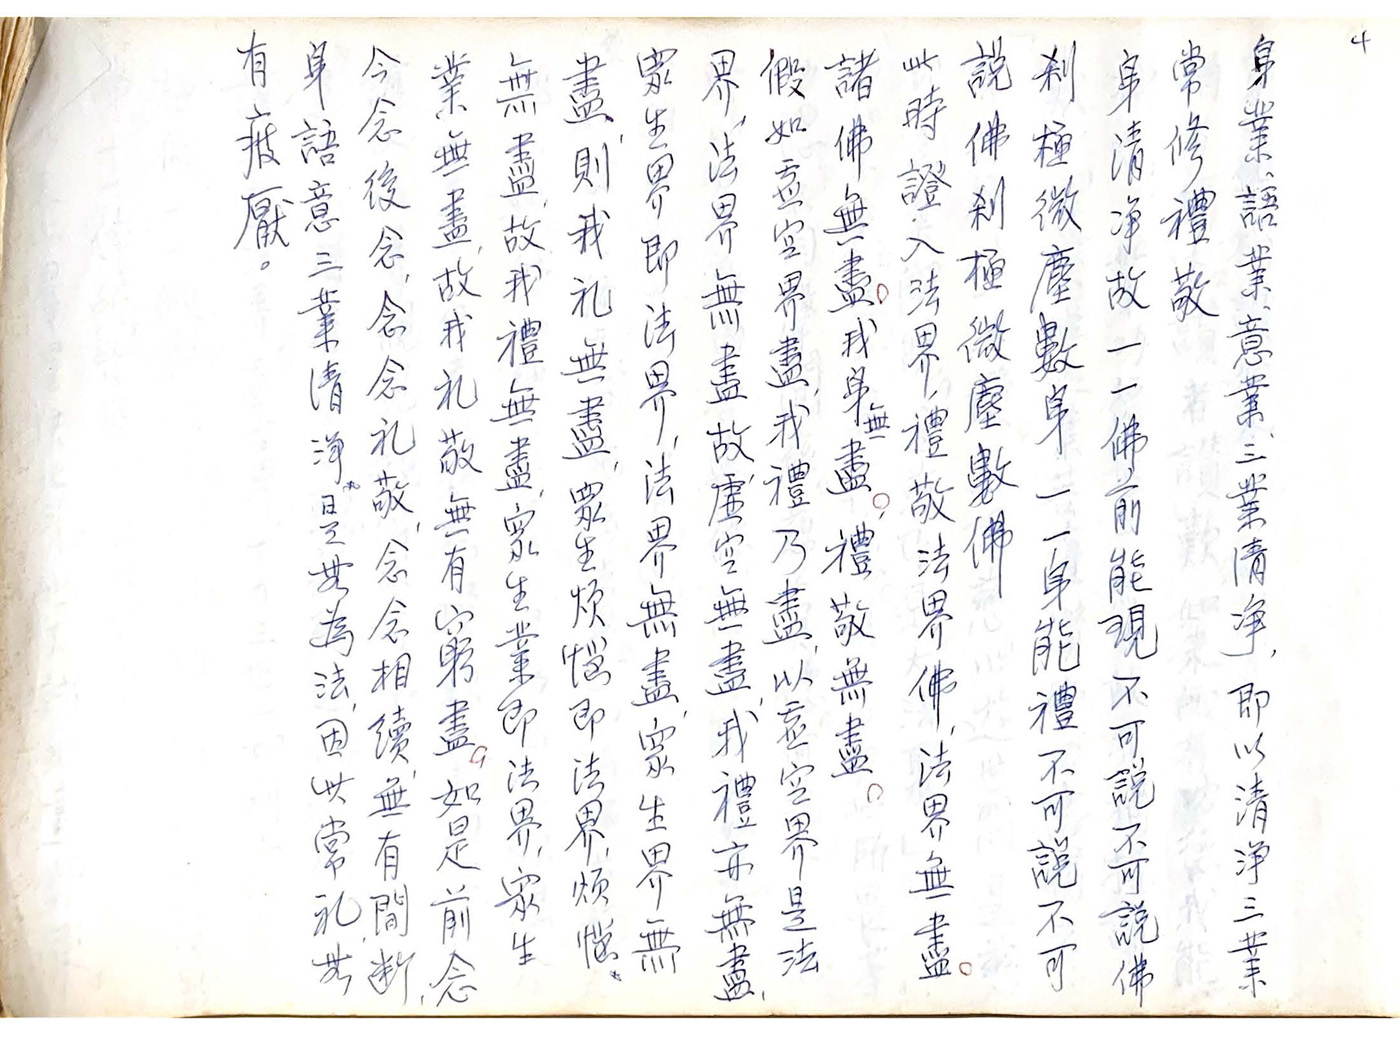 4
身業、語業、意業、三業清净，即以清净三業
常修禮敬
身清净故一一佛前能現不可說不可說佛
刹極微塵數身一一身能禮不可說不可
說佛刹極微塵數佛
此時證入法界，禮敬法界佛，法界無盡。
諸佛無盡。我身無盡。禮敬無盡。
假如虛空界盡，我禮乃盡，以虛空界是法
界，法界無盡故，虛空無盡，我禮亦無盡，
眾生界即法界，法界無盡，眾生界無
盡，則我礼無盡，眾生煩惱即法界，煩惱
無盡，故我禮無盡，眾生業即法界，眾生
業無盡，故我礼敬無有窮盡。如是前念
今念後念，念念礼敬，念念相續，無有間断，
身語意三業清净，是無為法，因此常礼，無
有疲厭。